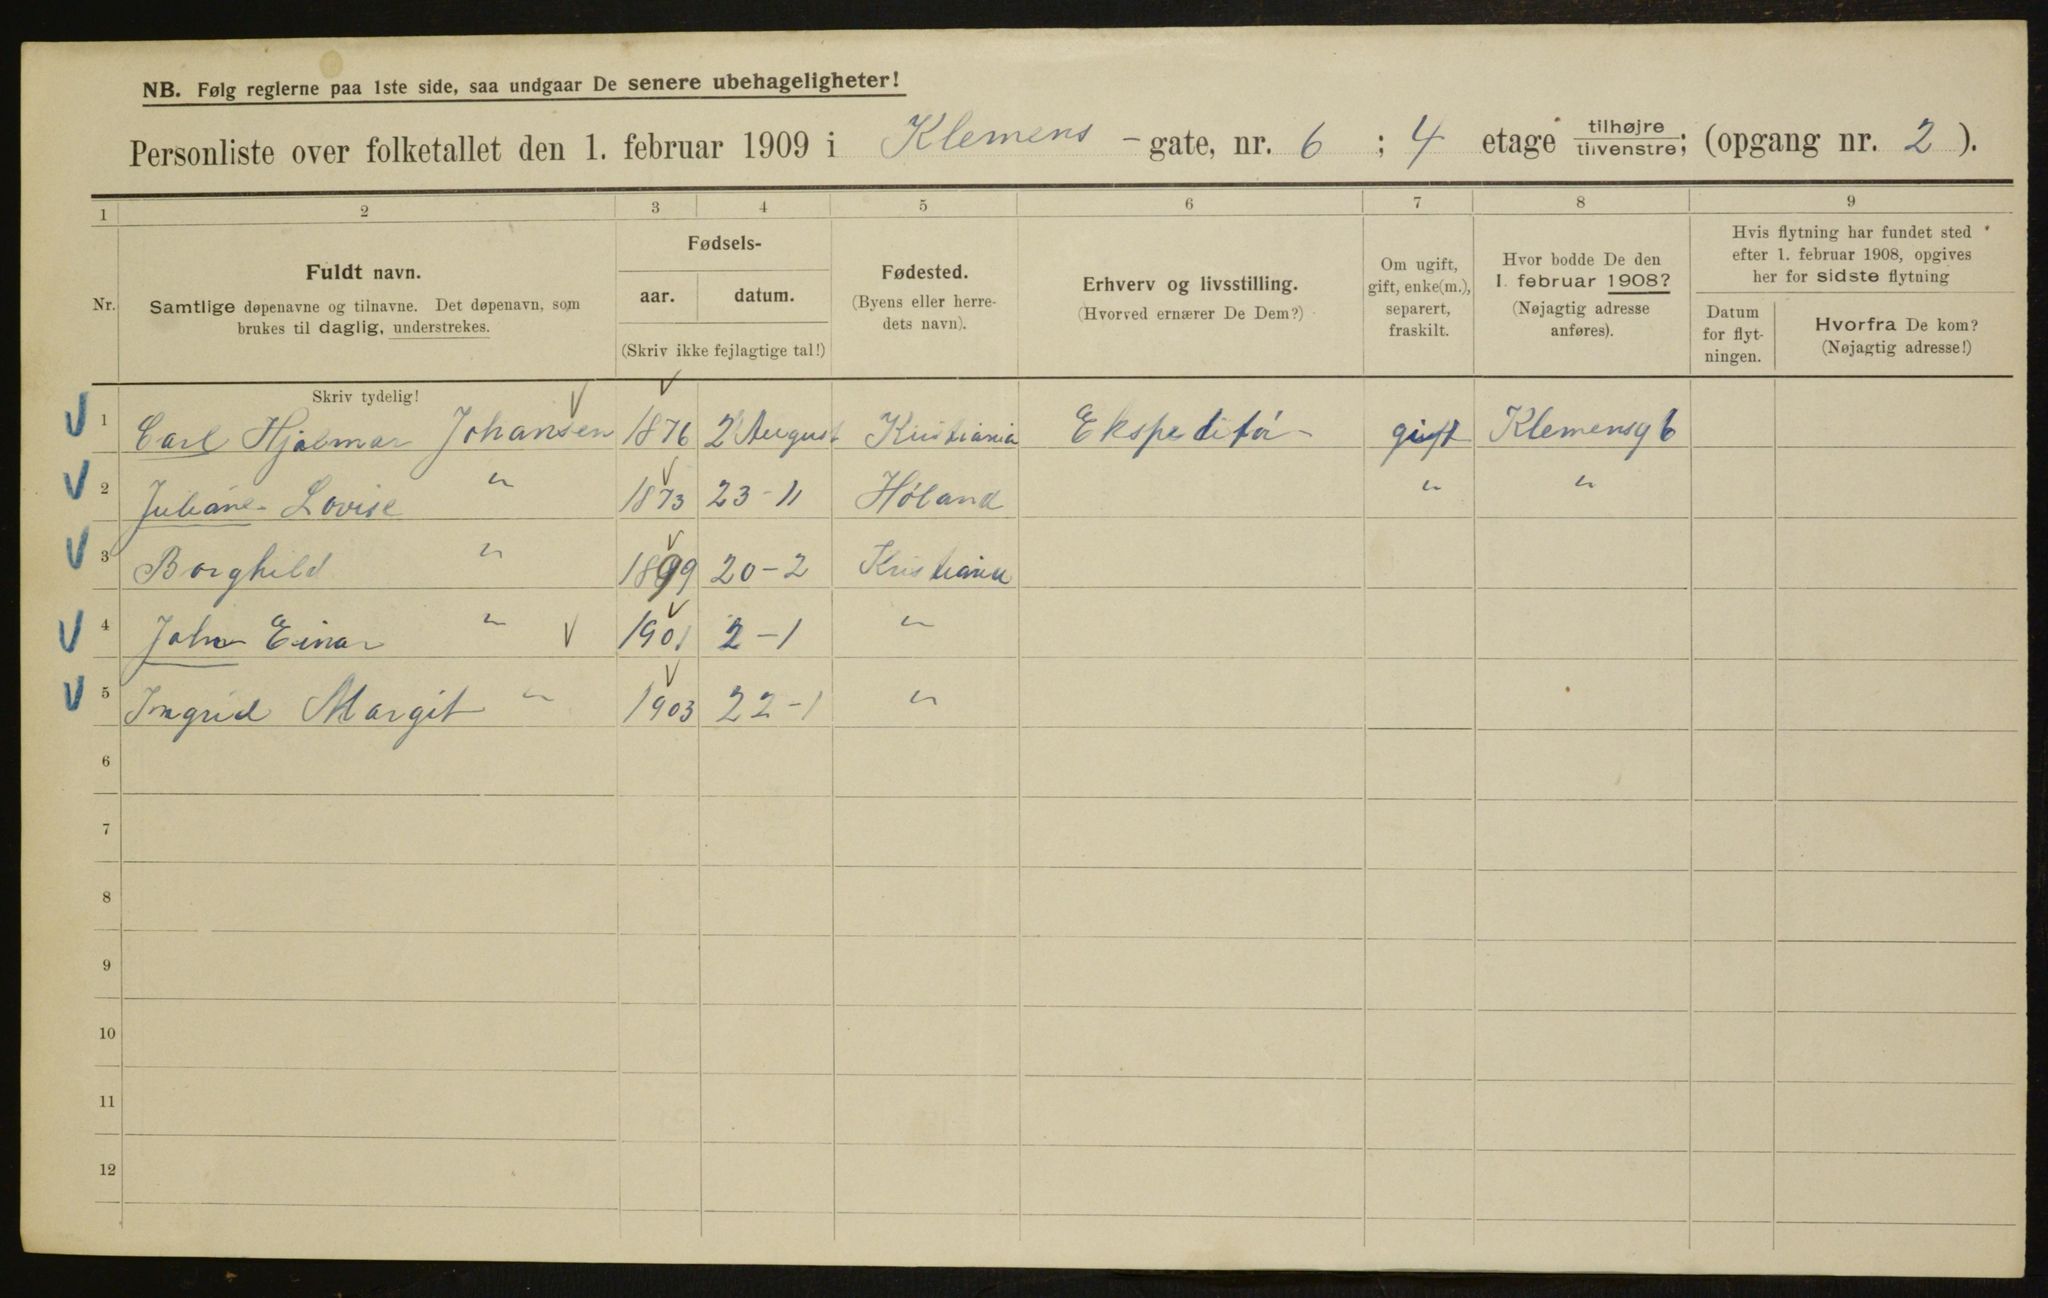 NB. Følg reglerne paa 1ste side, saa undgaar De senere ubehageligheter!
Personliste over folketallet den 1. februar 1909 i Klemens - gate, nr. 6 ; 4 etage tilhøjre tilvenstre; (opgang nr. 2 ).
1 2 3 4 5 6 7 8 9
Nr.
Fuldt navn.
Samtlige døpenavne og tilnavne. Det døpenavn, som
brukes til daglig, understrekes.
Fødsels-
aar. datum.
(Skriv ikke fejlagtige tal!)
Fødested.
(Byens eller herre-
dets navn).
Erhverv og livsstilling.
(Hvorved ernærer De Dem?)
Om ugift,
gift, enke(m.),
separert,
fraskilt.
Hvor bodde De den
1. februar 1908?
(Nøjagtig adresse
anføres).
Hvis flytning har fundet sted
efter 1. februar 1908, opgives
her for sidste flytning
Datum
for flyt-
ningen.
Hvorfra De kom?
(Nøjagtig adresse!)
Skriv tydelig!
1 Carl Hjalmar Johansen 1876 2 August Kristiania Ekspeditør gift Klemensg 6
2 Juliane Lovise " 1873 23-11 Høland " "
3 Borghild " 1899 20-2 Kristiania
4 John Einar " 1901 2-1 "
5 Ingrid Margit " 1903 22-1 "
6
7
8
9
10
11
12